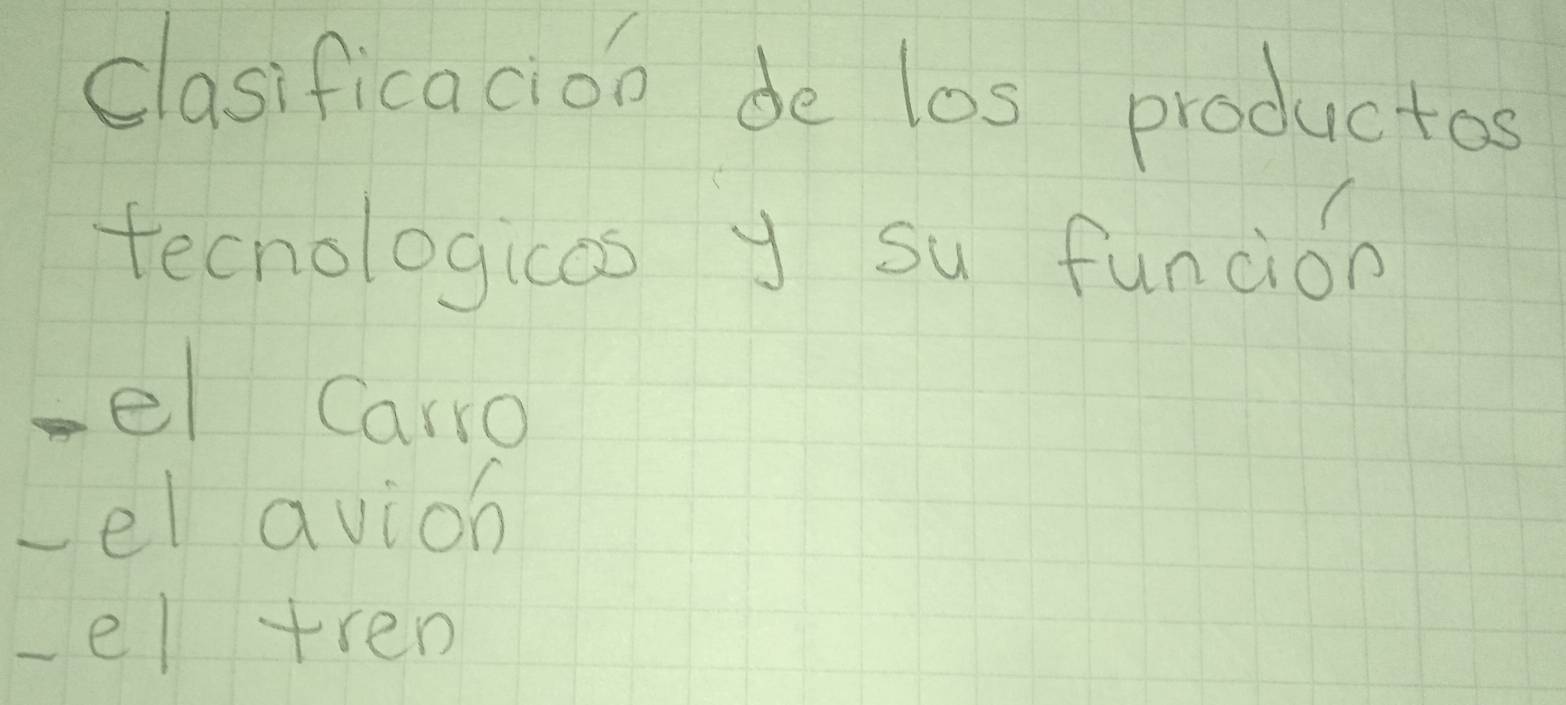 Clasificación de los productos
tecnologicos y su función
-el Carro
-el avión
-el tren